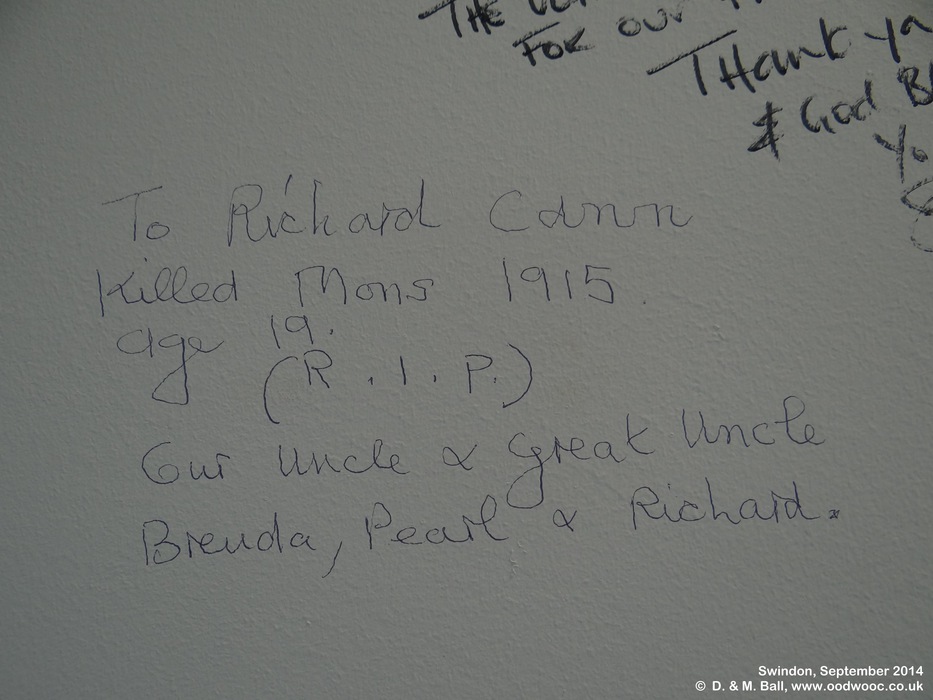 THE
FOR our
Thank
& God
To Richard Cann
Killed Mons 1915.
age 19.
(R.I.P.)
Our Uncle & Great Uncle
Brenda, Pearl & Richard.
Swindon, September 2014
© D. & M. Ball, www.oodwooc.co.uk